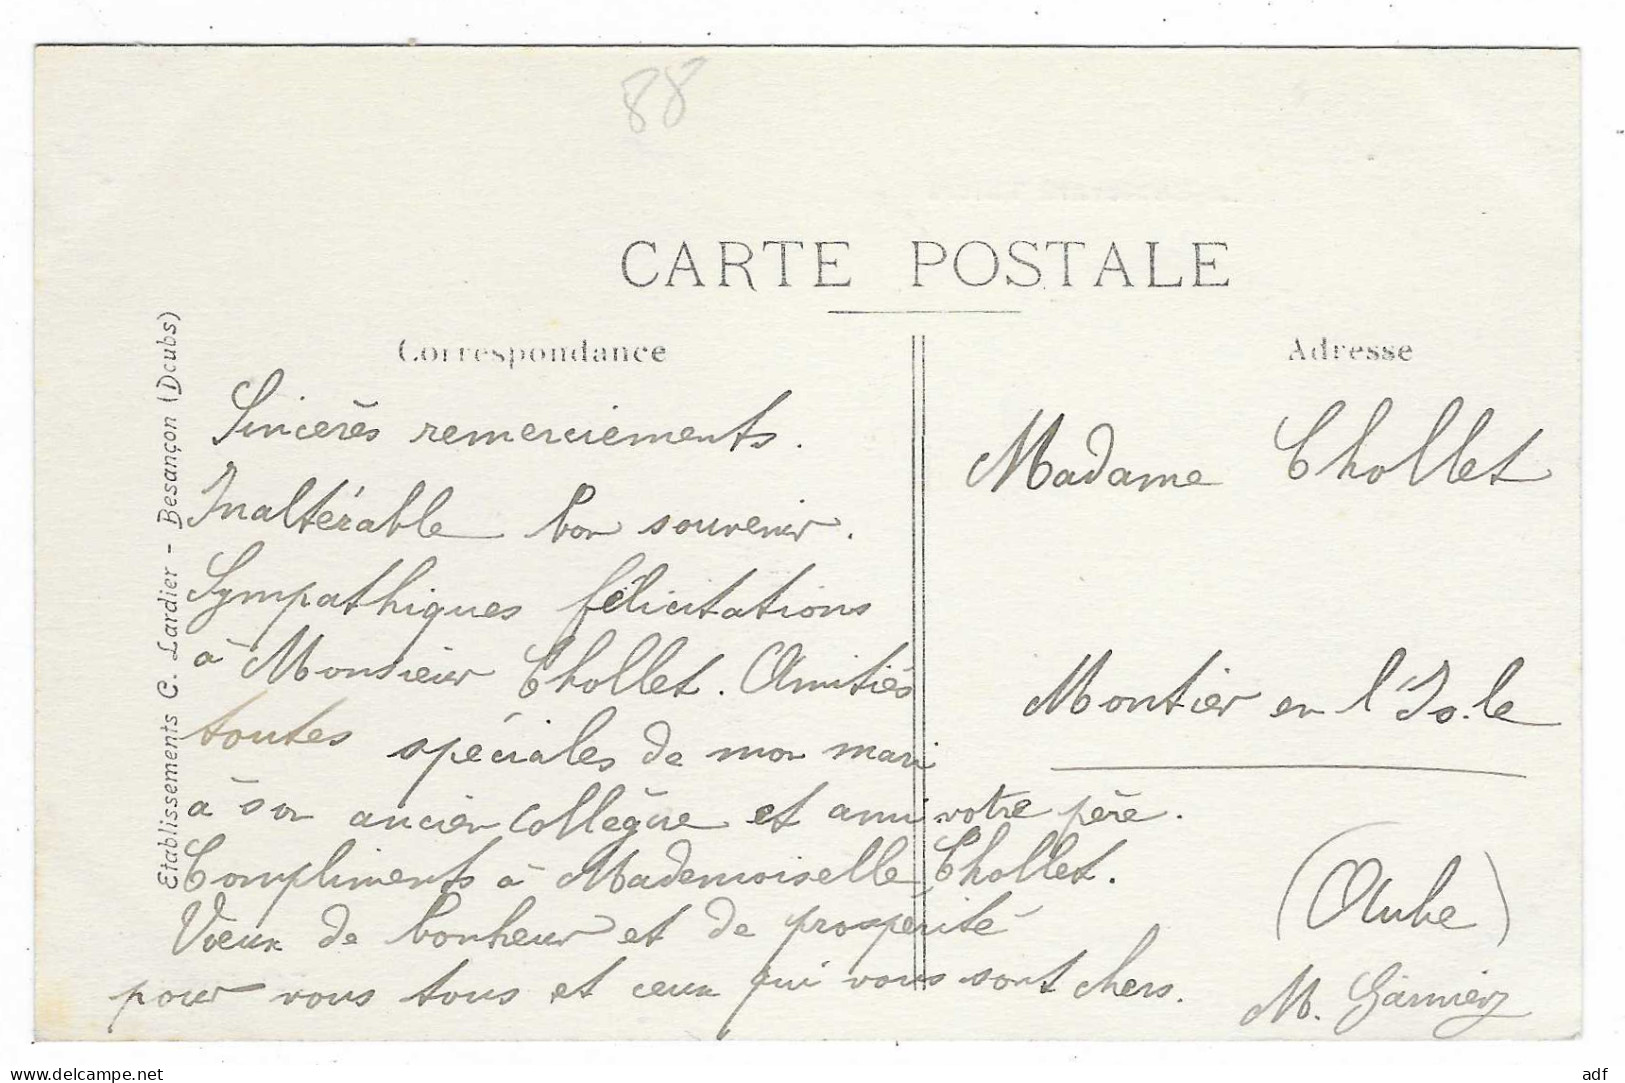 88
CARTE POSTALE
Correspondance
Adresse
Etablissements C. Lardier - Besançon (Doubs)
Sincères remerciements.
Inaltérable bon souvenir.
Sympathiques félicitations
à Monsieur Chollet. Amitiés
toutes spéciales de mon mari
à son ancien collègue et ami votre père.
Compliments à Mademoiselle Chollet.
Voeux de bonheur et de prospérité
pour vous tous et ceux qui vous sont chers.
Madame Chollet
Montier en l'Isle
(Aube)
M. Garnier
www.delcampe.net
adf